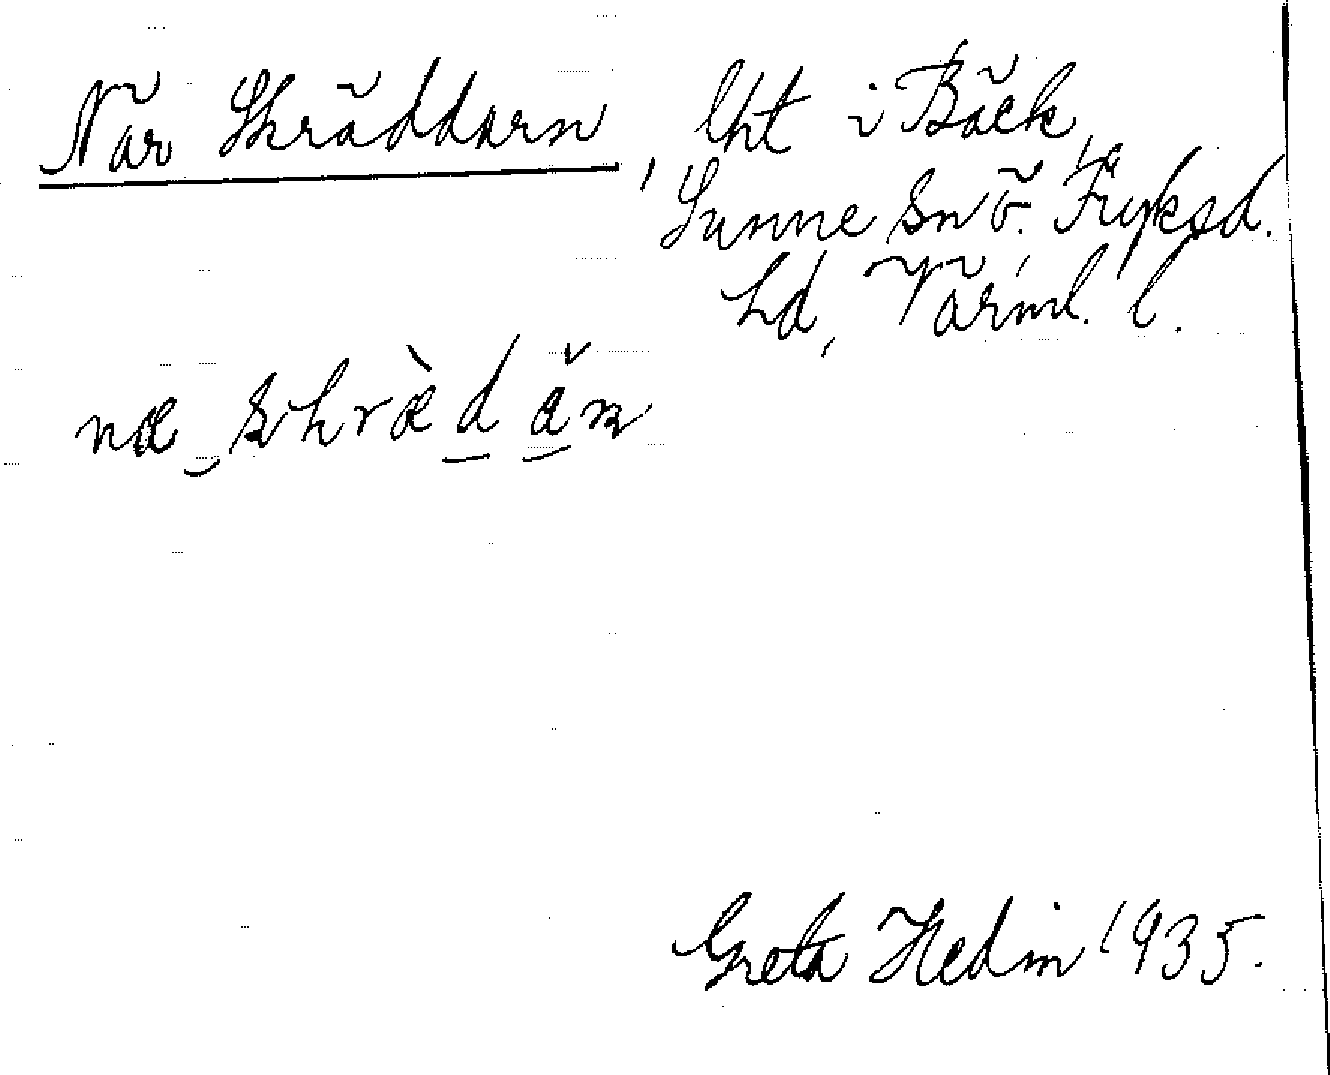 När Skräddarn, lht i Bäck,
Sunne sn Ö. Fryksd.
hd, Värml. l.
næ skrædan
Greta Hedin 1935.